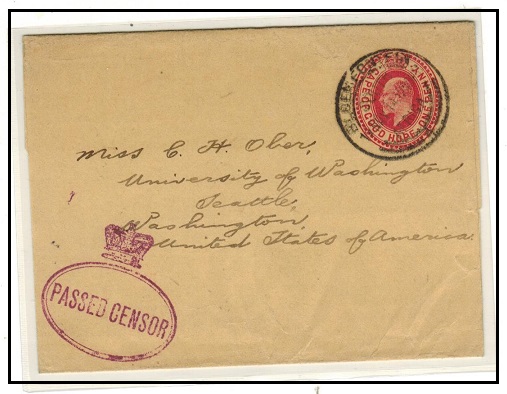 CAPE OF GOOD HOPE ONE PENNY
Miss C. H. Ober,
University of Washington
Seattle,
Washington,
United States of America.
PASSED CENSOR